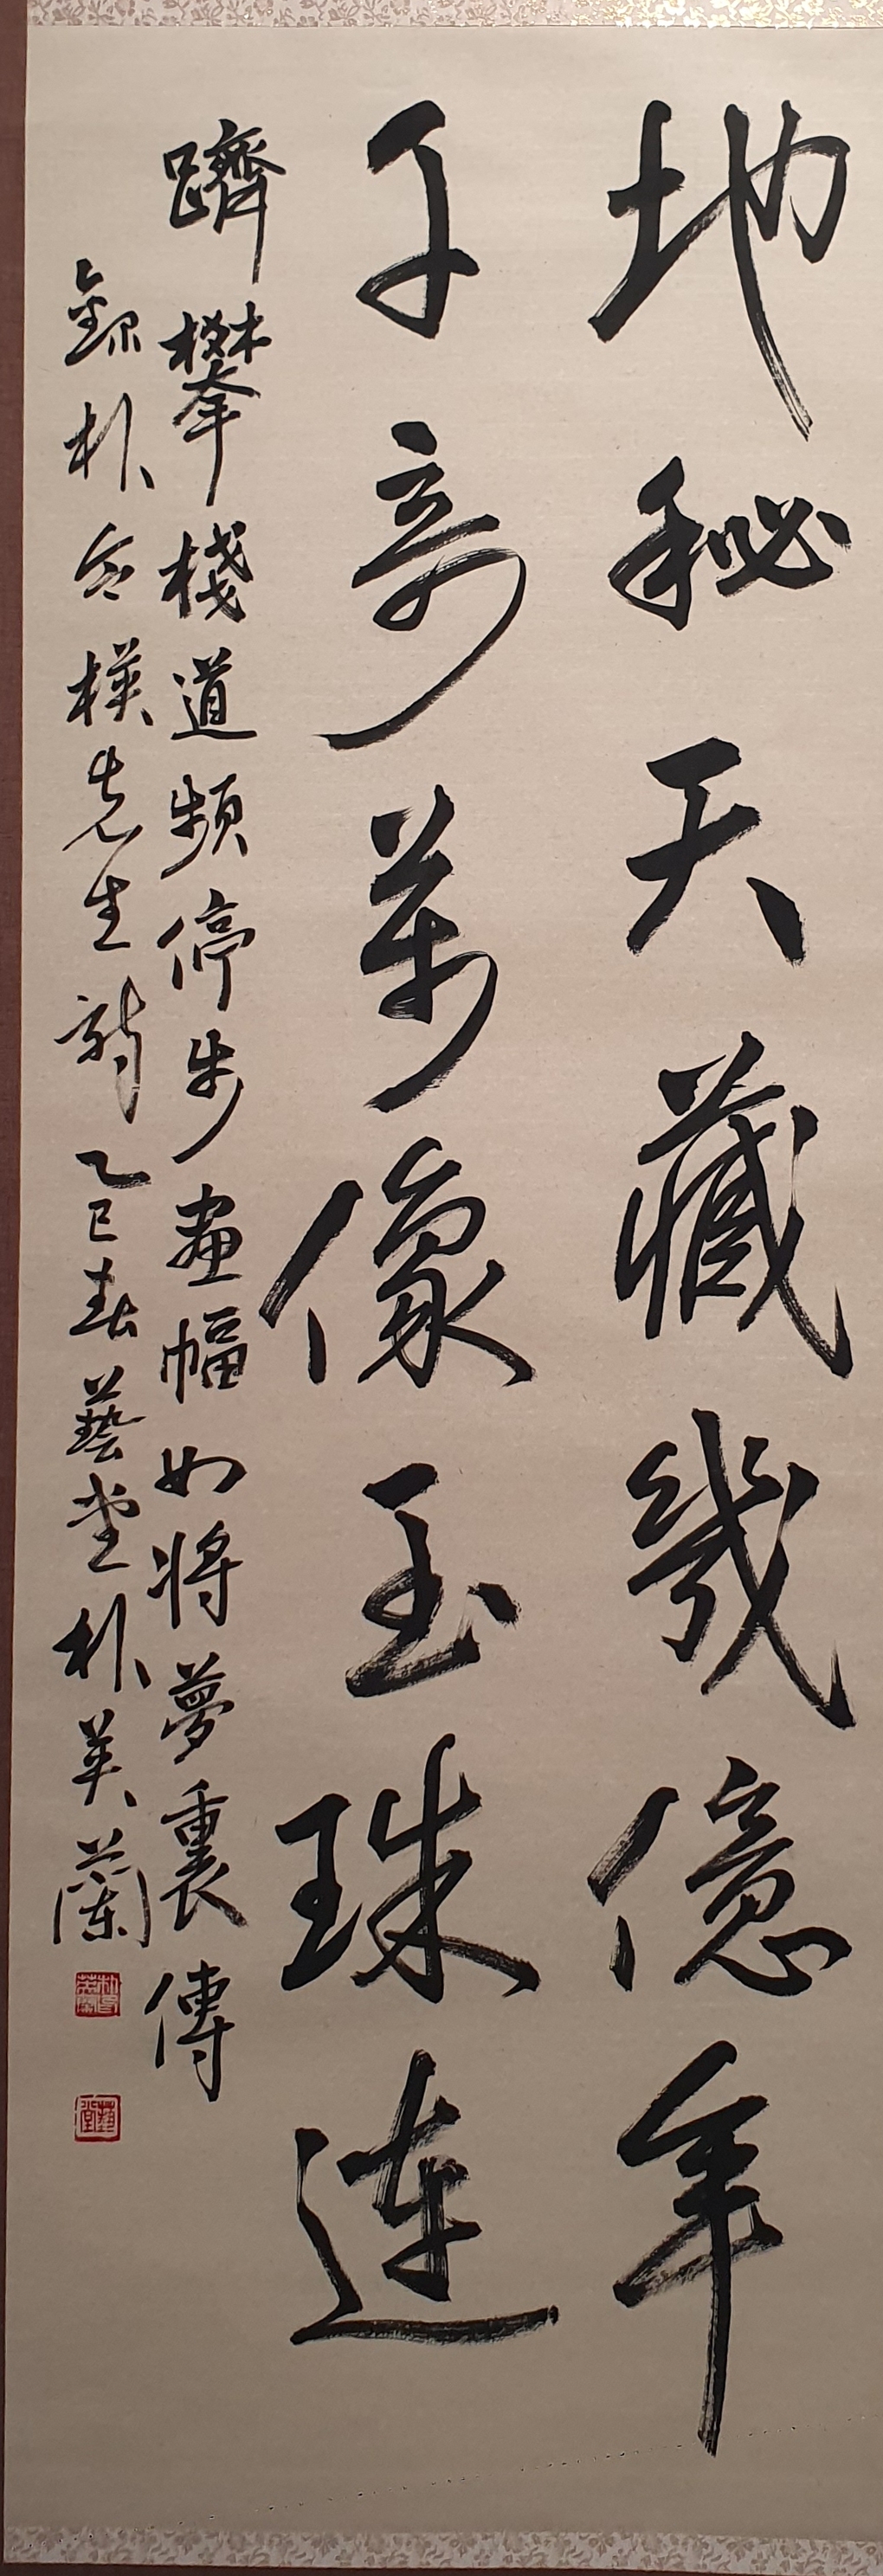 地秘天藏幾億年
千奇萬像玉珠連
躋攀棧道頻停步畫幅如將夢裏傳
錄朴永模先生詩乙巳春藝堂朴英蘭
朴英蘭
藝堂